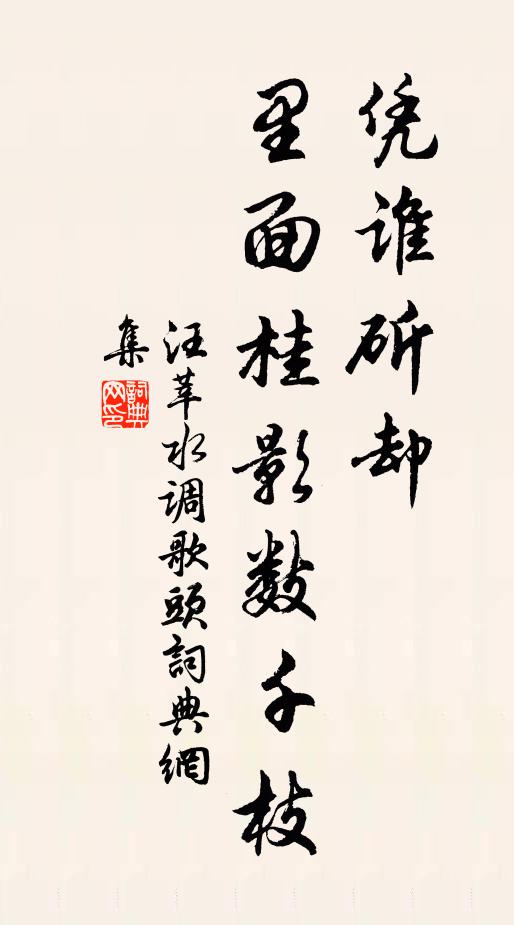 凭谁斫却
里面桂影数千枝
汪莘水调歌頭詞典網
集
詞典
网印